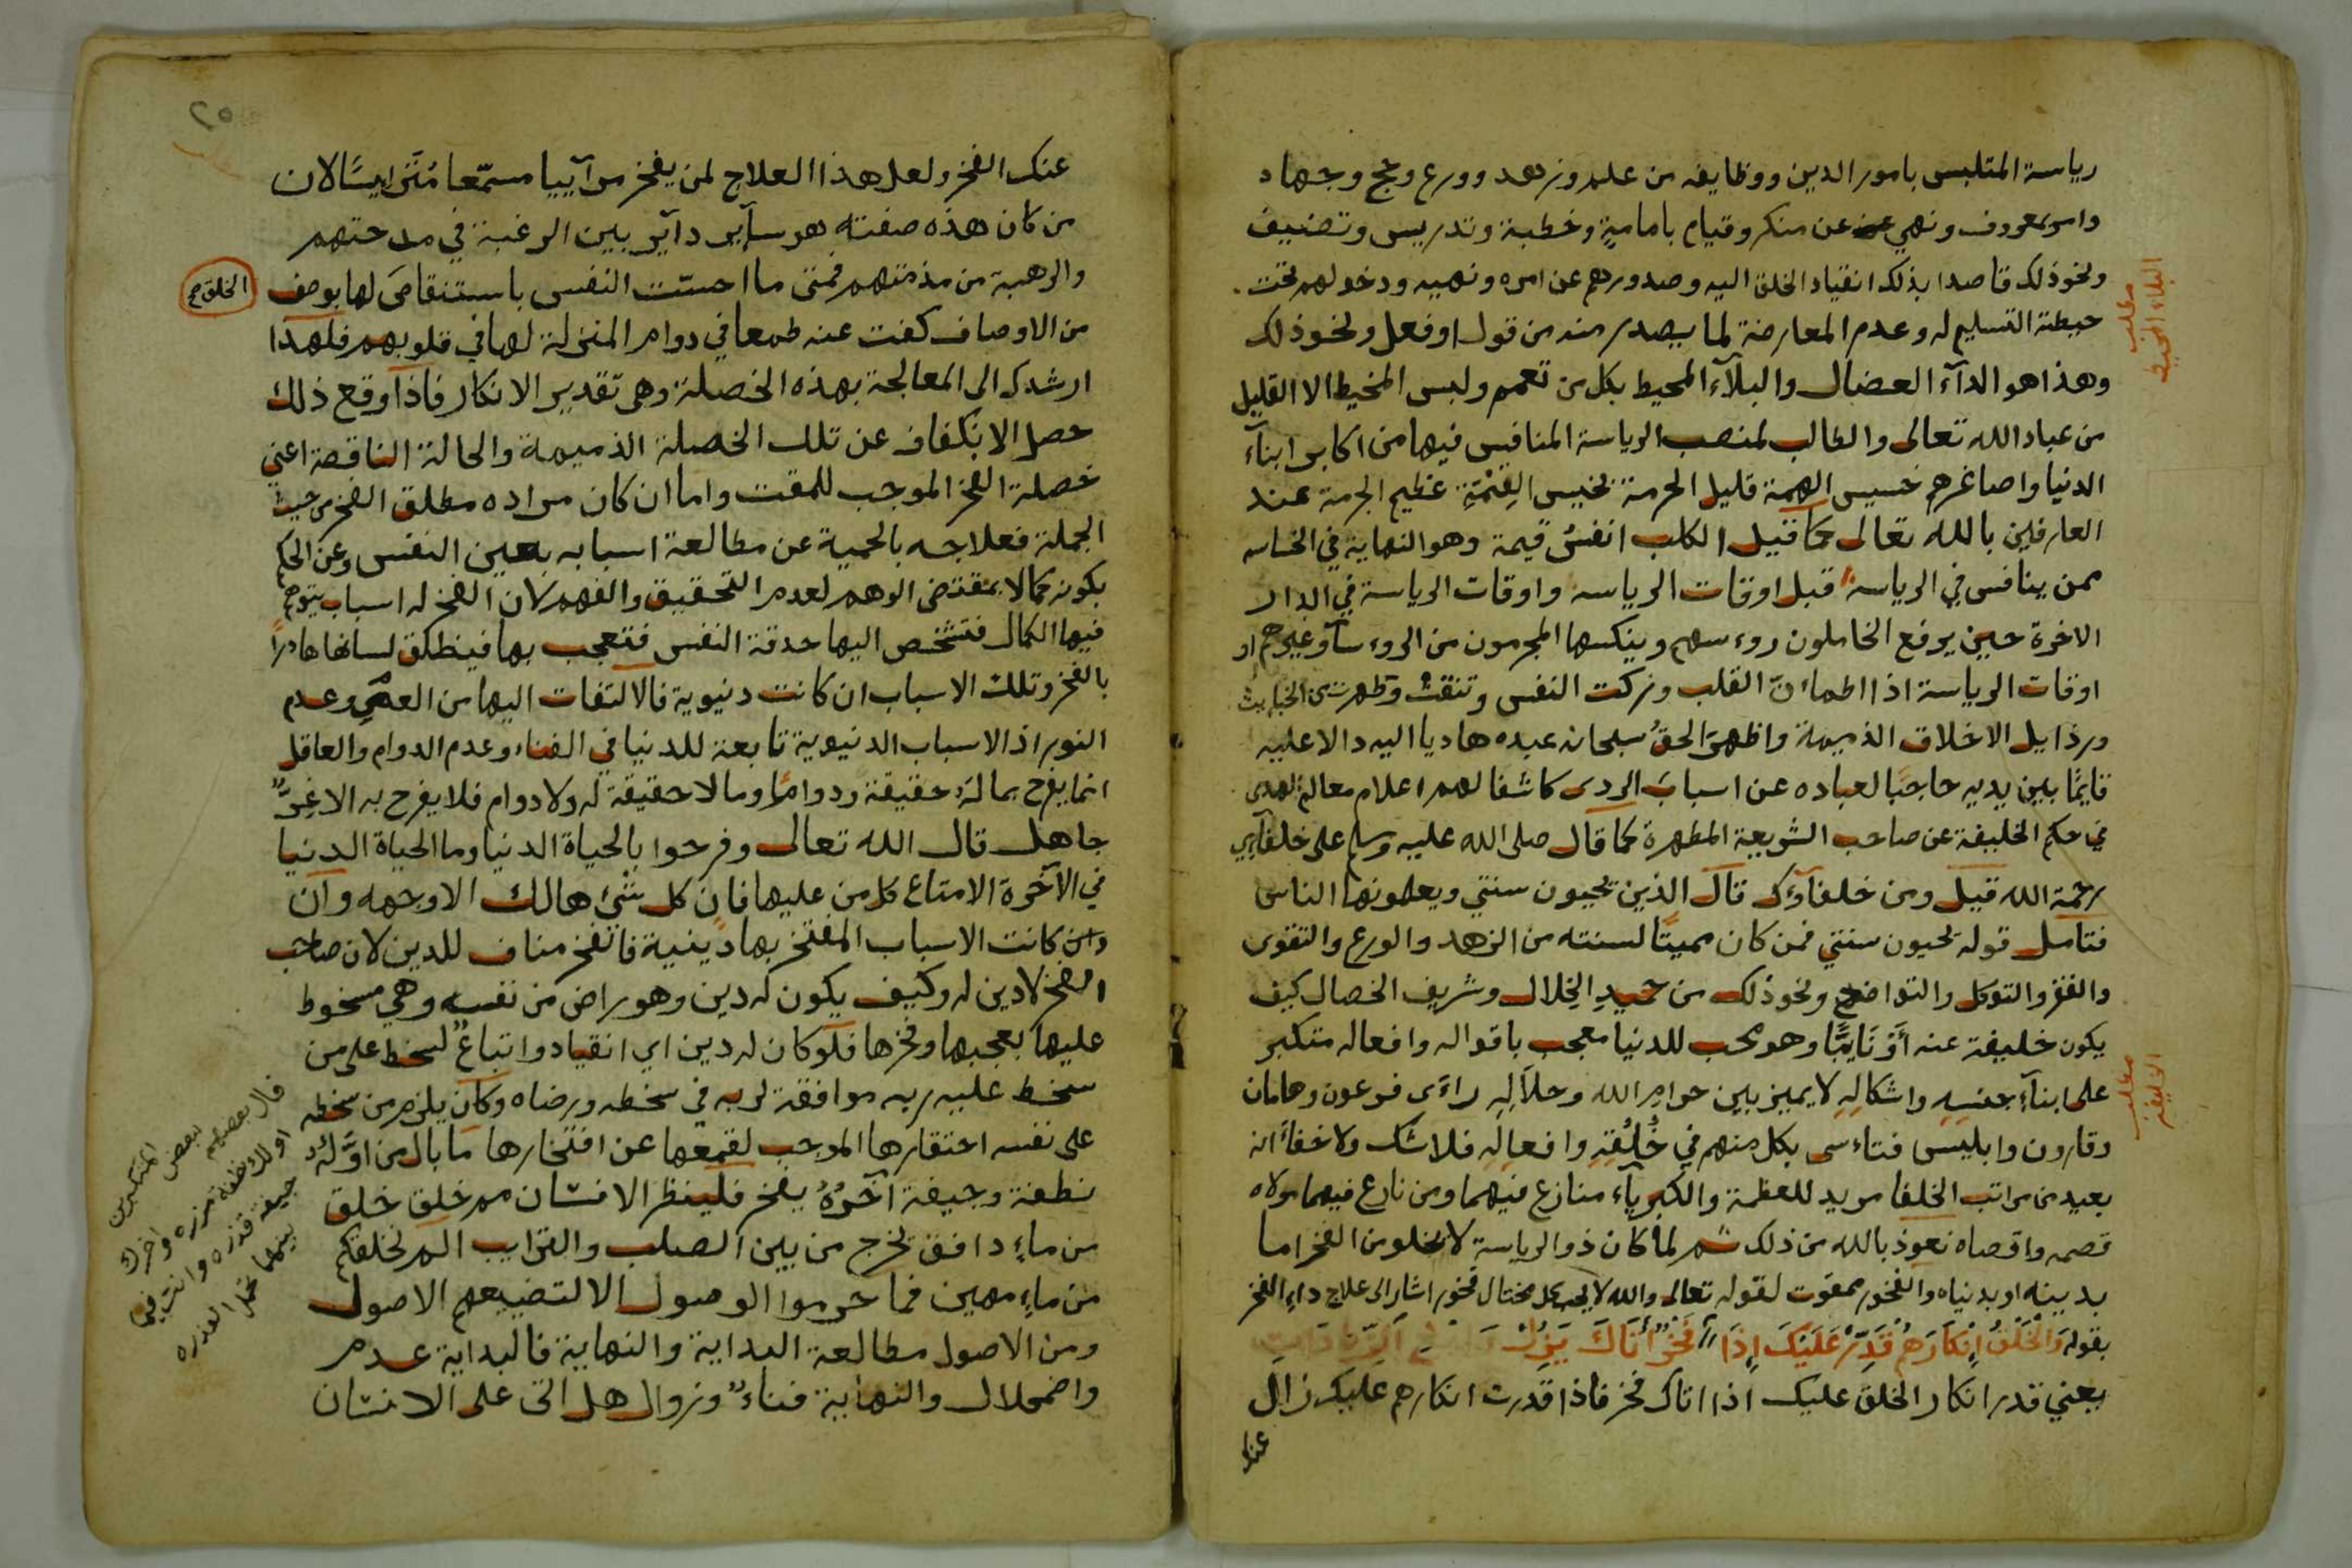 رياسة المتلبس بامور الدين ووظايفه من علم وزهد وورع وحج وجهاد
وامر بمعروف ونهي عن منكر وقيام بامامةٍ وخطبة وتدريس وتصنيف
ونحو ذلك قاصدا بذلك انقياد الخلق اليه وصدورهم عن امره ونهيه ودخولهم تحت
حيطة التسليم له وعدم المعارضة لما يصدر منه من قول او فعل ونحو ذلك
وهذا هو الدآء العضال والبلآء المحيط بكل من تعمم ولبس المخيط الا القليل
من عباد الله تعالى والطالب لمنصب الرياسة المنافس فيها من اكابر ابنآء
الدنيا واصاغرهم خسيس الهمة قليل الحرمة بخيس القِيْمَةِ عظيم الجرمة عند
العارفين بالله تعالى كما قيل الكلب انفسُ قيمة وهو النهاية في الخساسه
ممن ينافس في الرياسة قبل اوقات الرياسه واوقات الرياسة في الدار
الاخرة حين يرفع الخاملون روءسهم وينكسها المجرمون من الروءسآ وغيرهم او
اوقات الرياسة اذا اطماءنّ القلب وزكت النفس وتنقت وتطهرت من الخبايث
ورذايل الاخلاق الذميمة واظهرَ الحقُ سبحانه عبده هاديا اليه دالا عليه
قايمًا بين يديه حاجبًا لعباده عن اسبابَ الردى كاشفا لهم اعلام معالم الهدى
في حكم الخليفة عن صاحب الشريعة المطهرة كما قال صلى الله عليه وسلم على خلفآيي
رحمة الله قيل ومن خلفاؤك قال الذين يحيون سنتي ويعلمونها الناس
فتامل قوله يحيون سنتي فمن كان مميتًا لسنته من الزهد والورع والتقوى
والفقر والتوكل والتواضع ونحو ذلك من حميدِ الخِلال وشريف الخصال كيف
يكون خليفة عنه أوْ نَايبًا وهو محب للدنيا معجب باقواله وافعاله متكبر
على ابنآءِ جنسِهِ واشكالِهِ لا يميز بين حرامِ الله وحلَالِهِ راءَى فرعون وهامان
وقارون وابليس فتاءسى بكل منهم في خُلُقِهِ وافعالِهِ فلا شك ولا خفاءَ انه
بعيد من مراتب الخلفا مريد للعظمة والكبرياء منازع فيهما ومن نازع فيهما مولاه
قصمه واقصاه نعوذ بالله من ذلك ثم لما كان ذو الرياسة لا يخلو من الفخر اما
بدينه او بدنياه والفخور ممقوت لقوله تعالى والله لا يحب كل مختال فخور اشار الى علاج داءِ الفخر
بقوله وَالْخَلْقُ اِنْكَارَهُمْ قَدِّرْ عَلَيْكَ اِذَا فَخْرٌ أتَاكَ يَزُلْ
يعني قدر انكار الخلق عليك اذا اتاك فخر فاذا قدرت انكارهم عليك زال
عنك
مطلب
البلاء المحيط
مطلب
الخليفه
٢٥
عنك الفخر ولعل هذا العلاج لمن يفخر مرآييا مسمّعا لان
من كان هذه صفته هو ساير داير بين الرغبة في مدحتهم
والرهبة من مذمتهم فمتى ما احسّت النفس باستنقاصَ لها بوصف
الخلق صح
من الاوصاف كفت عنه طمعا في دوام المنزلة لها في قلوبهم فلهذا
ارشدك الى المعالجة بهذه الخصلة وهى تقدير الانكار فاذا وقع ذلك
حصل الانكفاف عن تلك الخصلة الذميمة والحالة الناقصة اعني
خصلة الفخر الموجب للمقت واما ان كان مراده مطلق الفخر من حيث
الجملة فعلاجه بالحمية عن مطالعة اسبابه بعين النفس وعن الحكم
بكونه كمالا بمقتضى الوهم لعدم التحقيق والفهم لان الفخر له اسباب يتوهم
فيها الكمال فتشخص اليها حدقة النفس فتعجب بها فينطلق لسانها هادرًا
بالفخر وتلك الاسباب ان كانت دنيوية فالالتفات اليها من العمي وعدم
النور اذ الاسباب الدنيوية تابعة للدنيا في الفناء وعدم الدوام والعاقل
انما يفرح بما له حقيقة ودوامًا وما لا حقيقة له ولا دوام فلا يفرح به الا غِرٌّ
جاهل قال الله تعالى وفرحوا بالحياة الدنيا وما الحياة الدنيا
في الآخرة الا متاع كل من عليها فان كل شئ هالك الا وجهه وان
وان كانت الاسباب المفتخر بها دينية فالفخر مناف للدين لان صاحب
الفخر لا دين له وكيف يكون له دين وهو راض من نفسه وهي مسخوط
عليها بعجبها وفخرها فلو كان له دين اي انقياد واتباع لسخط على من
سخط عليه ربه موافقة لربه في سخطه ورضاه وكان يلزم من سخطه
على نفسه احتقارها الموجب لقمعها عن افتخارها ما بال من اوَّلُهُ
نطفة وجيفة آخرُهُ يفخر فلينظر الانسان مم خلق خلق
من ماءٍ دافق يخرج من بين الصلب والترايب الم نخلقكم
من ماءٍ مهين فما حرموا الوصول الا لتضييعهم الاصول
ومن الاصول مطالعة البداية والنهاية فالبداية عدم
واضمحلال والنهاية فناءٌ وزوال هل اتى على الانسان
قال بعضهم لبعض المتكبرين
اولك نطفة مذره واخرك
جيفة قذره وانت فيما
بينهما تحمل العذره